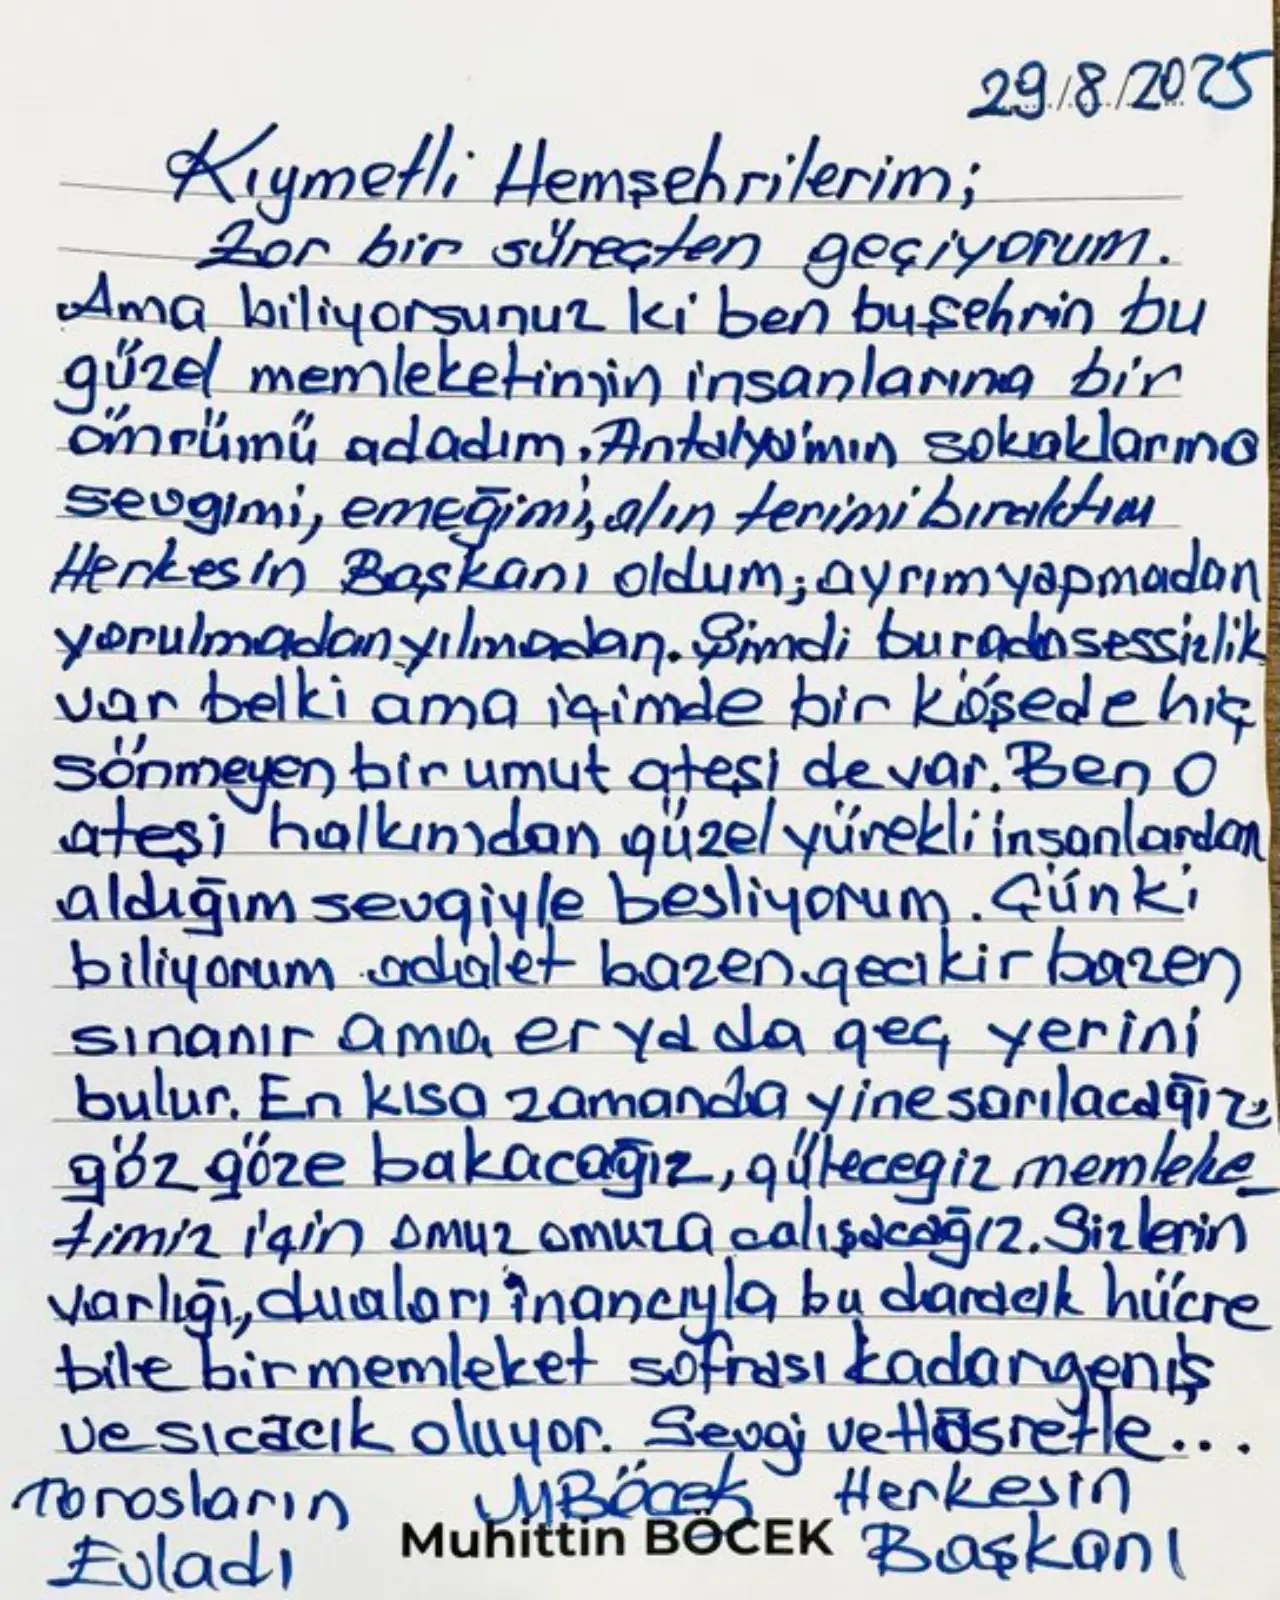 29/8/2025
Kıymetli Hemşehrilerim;
Zor bir süreçten geçiyorum.
Ama biliyorsunuz ki ben bu şehrin bu
güzel memleketimin insanlarına bir
ömrümü adadım. Antalya'mın sokaklarına
sevgimi, emeğimi, alın terimi bıraktım
Herkesin Başkanı oldum, ayrım yapmadan
yorulmadan yılmadan. Şimdi burada sessizlik
var belki ama içimde bir köşede hiç
sönmeyen bir umut ateşi de var. Ben o
ateşi halkımdan güzel yürekli insanlardan
aldığım sevgiyle besliyorum. Çünki
biliyorum adalet bazen gecikir bazen
sınanır ama er ya da geç yerini
bulur. En kısa zamanda yine sarılacağız,
göz göze bakacağız, gülecegiz memleke_
timiz için omuz omuza çalışacağız. Sizlerin
varlığı, duaları inancıyla bu daracık hücre
bile bir memleket sofrası kadar geniş
ve sıcacık oluyor. Sevgi ve Hasretle...
Torosların MBöcek Herkesin
Muhittin BÖCEK
Evladı Başkanı